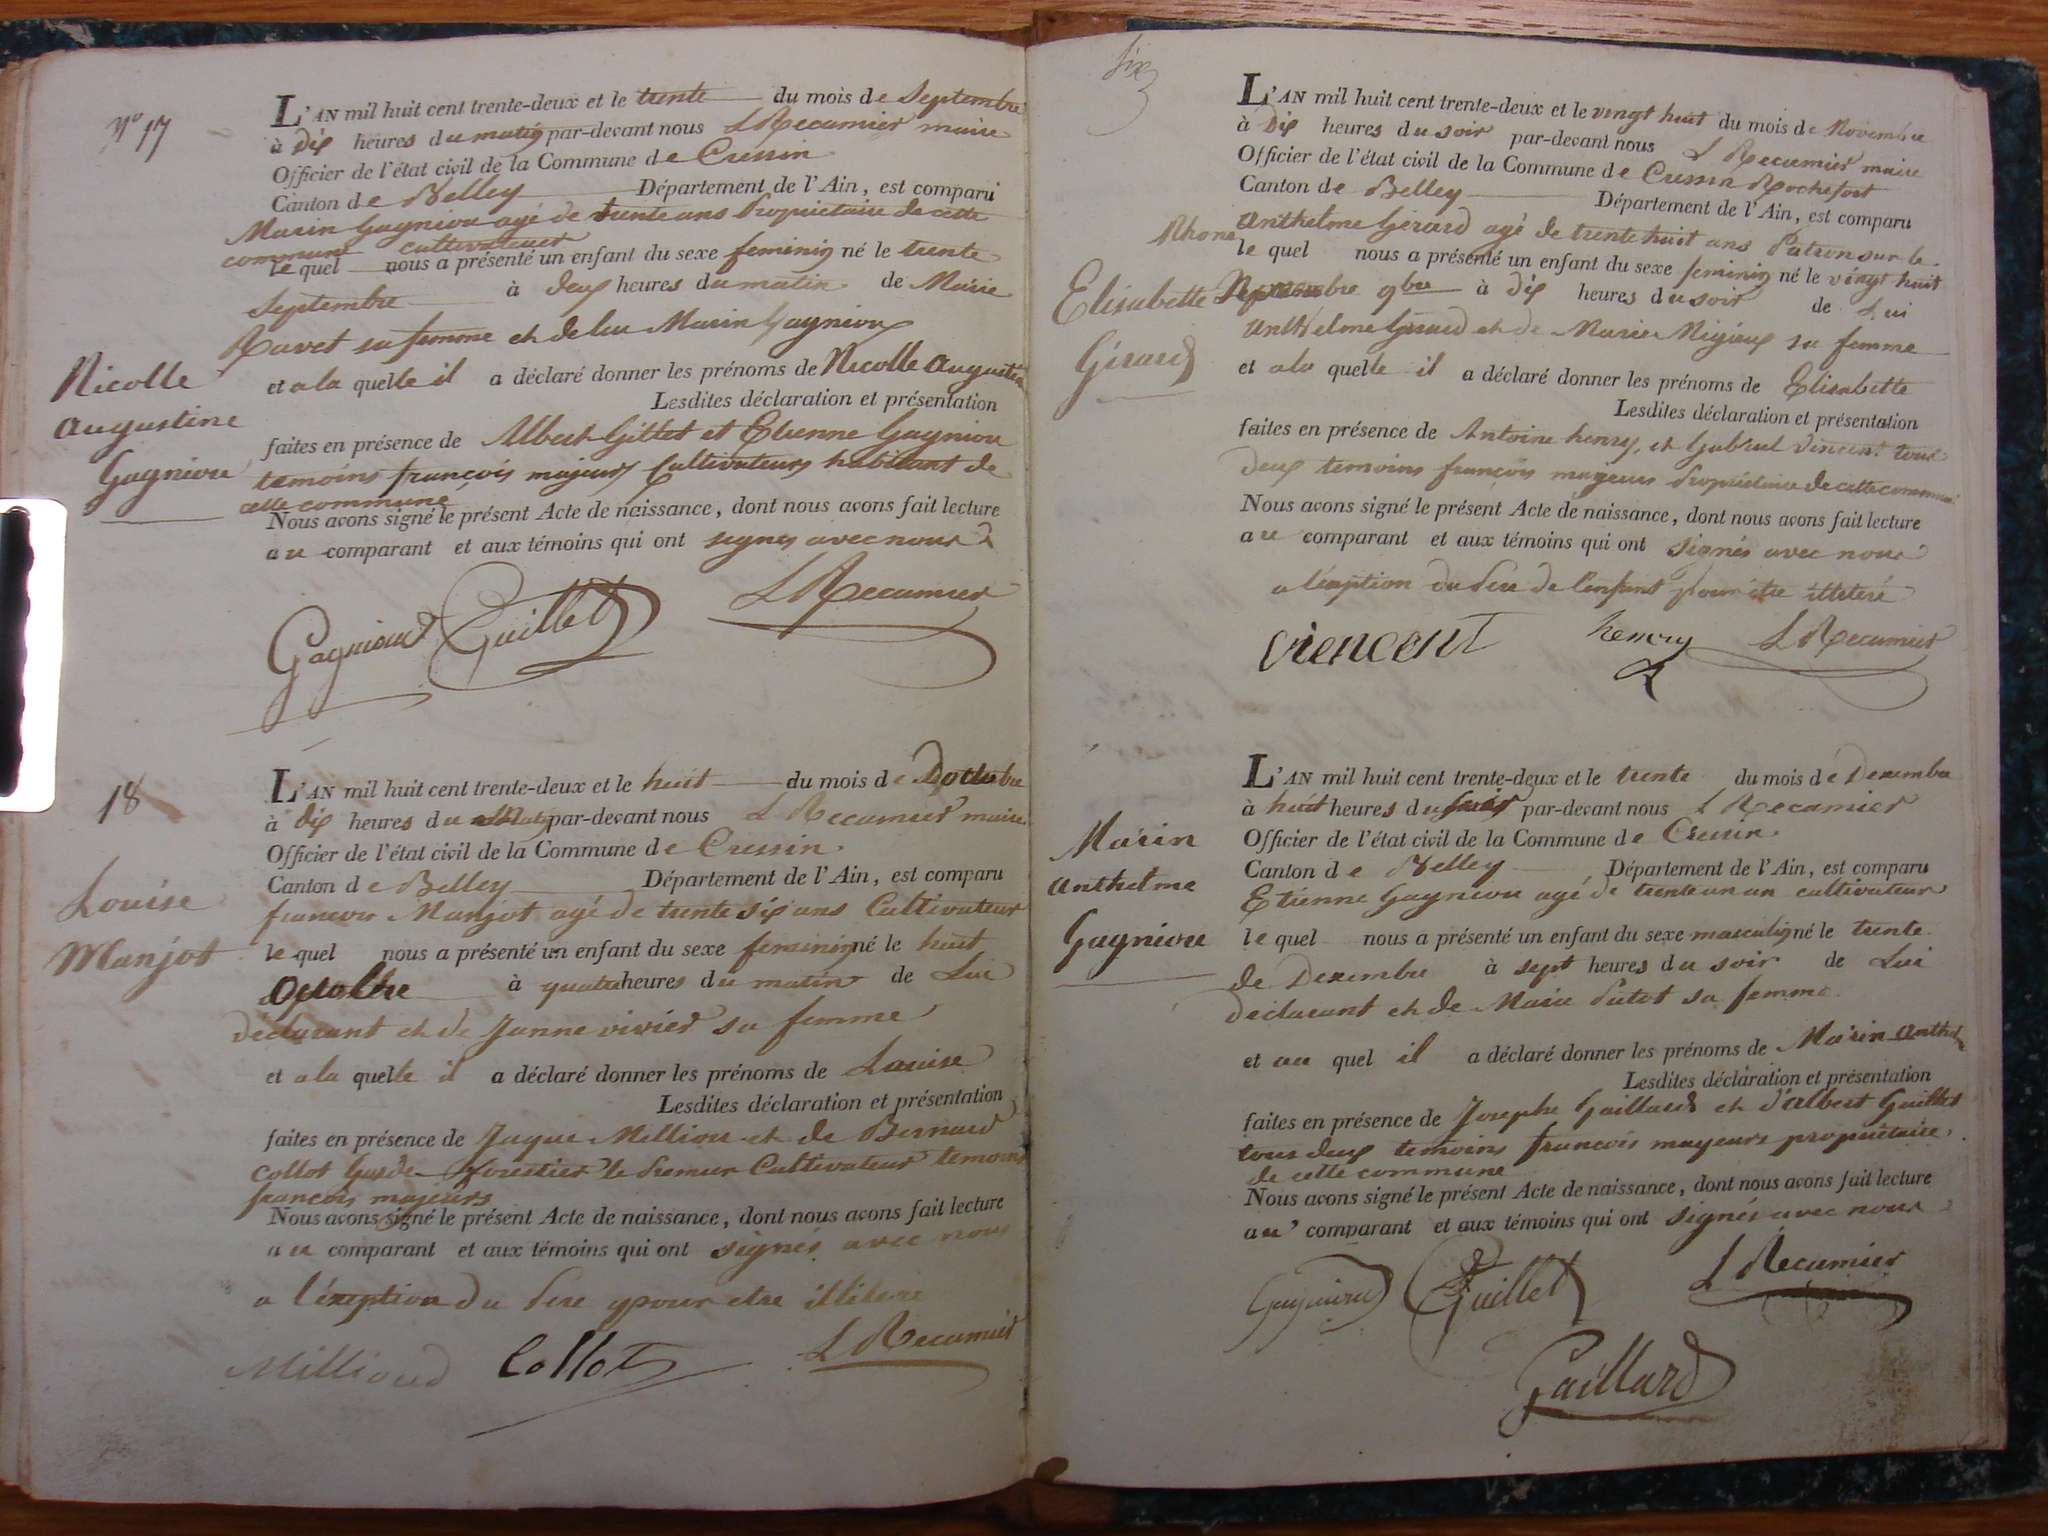 N° 17
L'AN mil huit cent trente-deux et le trente du mois de Septembre
à dix heures du matin par-devant nous L Recamier maire
Officier de l'état civil de la Commune de Cressin
Canton de Belley Département de l'Ain, est comparu
Marin Gagniou agé de trente ans Propriétaire de cette
commune cultivateur
le quel nous a présenté un enfant du sexe feminin né le trente
Septembre à deux heures du matin de Marie
Ravet sa femme et de lui Marin Gagnioux
Nicolle
Augustine
Gagniou
et a la quelle il a déclaré donner les prénoms de Nicolle Augustine
Lesdites déclaration et présentation
faites en présence de Albert Gillet et Etienne Gagniou
temoins francois majeurs Cultivateurs habitant de
cette commune
Nous avons signé le présent Acte de naissance, dont nous avons fait lecture
au comparant et aux témoins qui ont signés avec nous
Gagnioud Guillet L Recamier
18
L'AN mil huit cent trente-deux et le huit du mois de Doctobre
à dix heures du matin par-devant nous L Recamier maire
Officier de l'état civil de la Commune de Cressin
Canton de Belley Département de l'Ain, est comparu
Louise
Manjot
francois Manjot agé de trente six ans Cultivateur
le quel nous a présenté un enfant du sexe feminin né le huit
Octobre à quatre heures du matin de Lui
déclarant et de Janne vivier sa femme
et a la quelle il a déclaré donner les prénoms de Louise
Lesdites déclaration et présentation
faites en présence de Jaque Milliou et de Bernard
Collot Garde forestier le Premier Cultivateur temoins
francois majeurs
Nous avons signé le présent Acte de naissance, dont nous avons fait lecture
au comparant et aux témoins qui ont signés avec nous
a l'exeption du Pere pour etre illitere
Millioud Collot L Recamier
six
L'AN mil huit cent trente-deux et le vingt huit du mois de Novembre
à Dix heures du soir par-devant nous L Recamier maire
Officier de l'état civil de la Commune de Cressin Rochefort
Canton de Belley Département de l'Ain, est comparu
Anthelme Gerard agé de trente huit ans Patron sur le
Rhone le quel nous a présenté un enfant du sexe feminin né le vingt huit
Elisabette
Girard
9bre à dix heures du soir de Lui
Anthelme Girard et de Marie Migieux sa femme
et a la quelle il a déclaré donner les prénoms de Elisabette
Lesdites déclaration et présentation
faites en présence de Antoine henry, et Gabriel Vincent tous
deux temoins francois majeurs Propriétaire de cette commune
Nous avons signé le présent Acte de naissance, dont nous avons fait lecture
au comparant et aux témoins qui ont signés avec nous
a l'exeption du Pere de l'enfant pour être illeteré
viencent henry L Recamier
L'AN mil huit cent trente-deux et le trente du mois de Dexembre
à huit heures du soir par-devant nous L Recamier
Officier de l'état civil de la Commune de Cressin
Canton de Belley Département de l'Ain, est comparu
Marin
Anthelme
Gagniou
Etienne Gagniou agé de trente un an cultivateur
le quel nous a présenté un enfant du sexe masculin né le trente
de Dexembre à sept heures du soir de Lui
declarant et de Marie Putot sa femme
et au quel il a déclaré donner les prénoms de Marin Anthelme
Lesdites déclaration et présentation
faites en présence de Josephe Gaillard et d'albert Guillet
tous deux temoins francois mayeurs propriétaire
de cette commune
Nous avons signé le présent Acte de naissance, dont nous avons fait lecture
au comparant et aux témoins qui ont signés avec nous
Gagnioud Guillet L Recamier
Gaillard